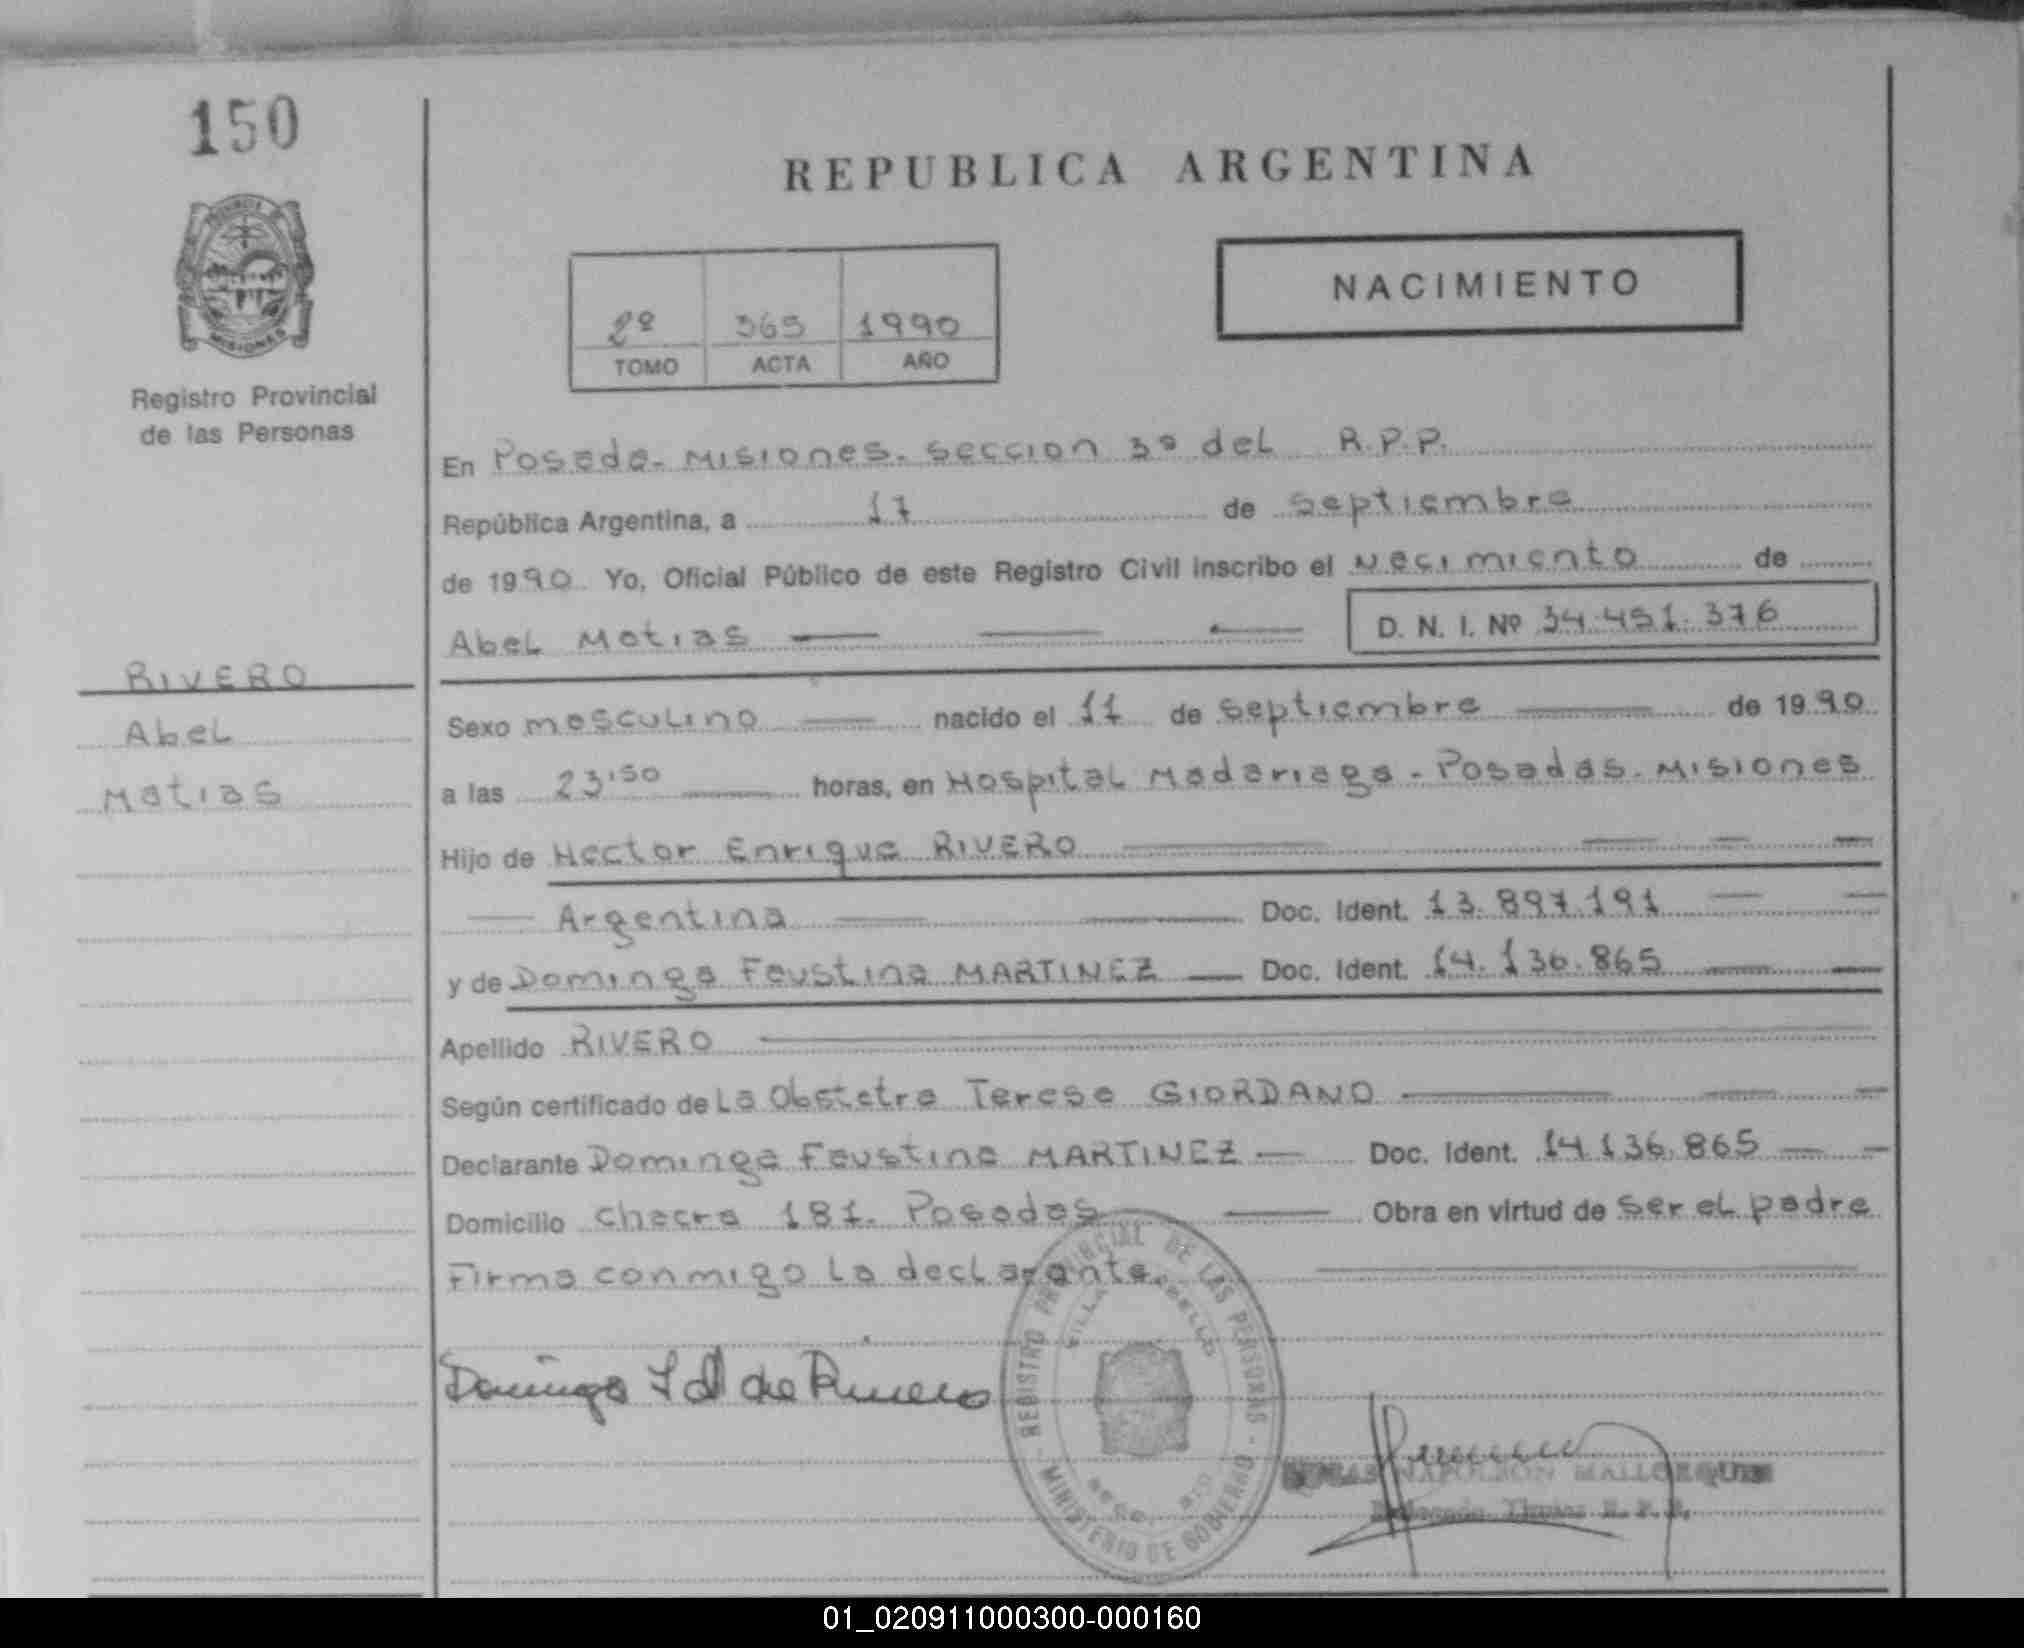 150
REPUBLICA ARGENTINA
PROVINCIA DE
MISIONES
Registro Provincial
de las Personas
NACIMIENTO
2º 365 1990
TOMO ACTA AÑO
En Posada. Misiones. Seccion 3º del R.P.P.
República Argentina, a 17 de septiembre
de 1990. Yo, Oficial Público de este Registro Civil inscribo el Nacimiento de
Abel Matias
D. N. I. Nº 34.451.376
RIVERO
Abel
Matias
Sexo masculino nacido el 11 de septiembre de 1990
a las 23'50 horas, en Hospital Madariaga - Posadas. Misiones
Hijo de Hector Enrique RIVERO
Argentina Doc. Ident. 13.897.191
y de Dominga Faustina MARTINEZ Doc. Ident. 14.136.865
Apellido RIVERO
Según certificado de La Obstetra Teresa GIORDANO
Declarante Dominga Faustina MARTINEZ Doc. Ident. 14.136.865
Domicilio Chacra 181. Posadas Obra en virtud de ser el padre
Firma conmigo la declarante.
REGISTRO PROVINCIAL DE LAS PERSONAS
MINISTERIO DE GOBIERNO
VILLA
Dominga F d de Rivero
NAPOLEON MALLORQUIN
Delegado R.P.P.
01_020911000300-000160